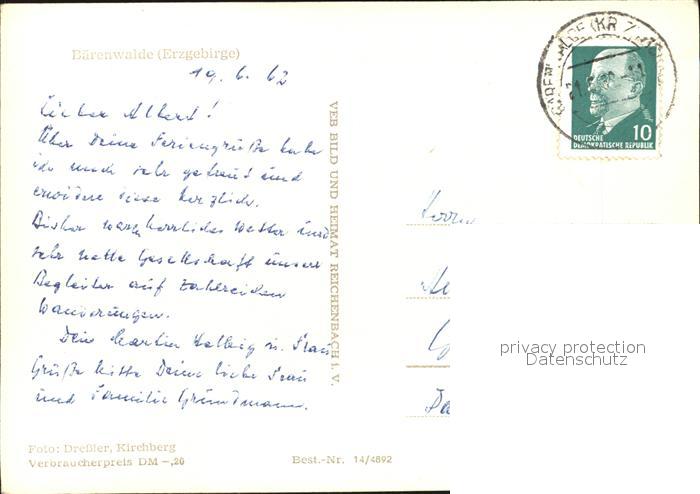 Bärenwalde (Erzgebirge)
19. 6. 62
Lieber Albert!
Über Deine Feriengrüße habe
ich mich sehr gefreut und
erwidere diese herzlich.
Bisher waren herrliches Wetter und
sehr nette Gesellschaft unsere
Begleiter auf zahlreichen
Wanderungen.
Dein Martin Helbig u. Frau
Grüße bitte Deine liebe Frau
und Familie Grundmann.
VEB BILD UND HEIMAT REICHENBACH i. V.
Foto: Dreßler, Kirchberg
Verbraucherpreis DM -,20
Best.-Nr. 14/4892
(KR
10
DEUTSCHE
DEMOKRATISCHE REPUBLIK
Herrn
privacy protection
Datenschutz